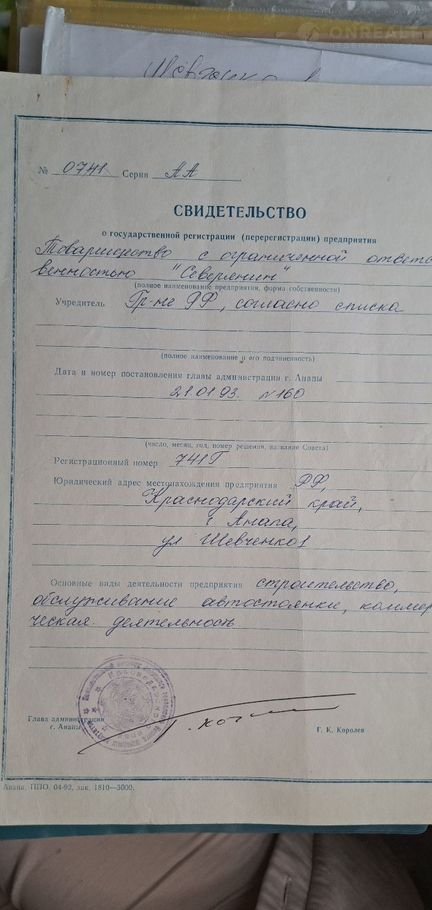 ONREALT
№ 0741 Серии АА
СВИДЕТЕЛЬСТВО
о государственной регистрации (перерегистрации) предприятия
Товарищество с ограниченной ответст
венностью "Северянин"
(полное наименование предприятия, форма собственности)
Учредитель Гр-не РФ, согласно списка
(полное наименование и его подчиненность)
Дата и номер постановления главы администрации г. Анапы
21.01.93. №160
(число, месяц, год, номер решения, название Совета)
Регистрационный номер 741Г
Юридический адрес местонахождения предприятия РФ,
Краснодарский край,
г. Анапа,
ул Шевченко 1
Основные виды деятельности предприятия строительство,
обслуживание автостоянки, коммер
ческая деятельность
Глава администрации
г. Анапы
Г. К. Королев
Анапа. ППО. 04-92, зак. 1810—3000.